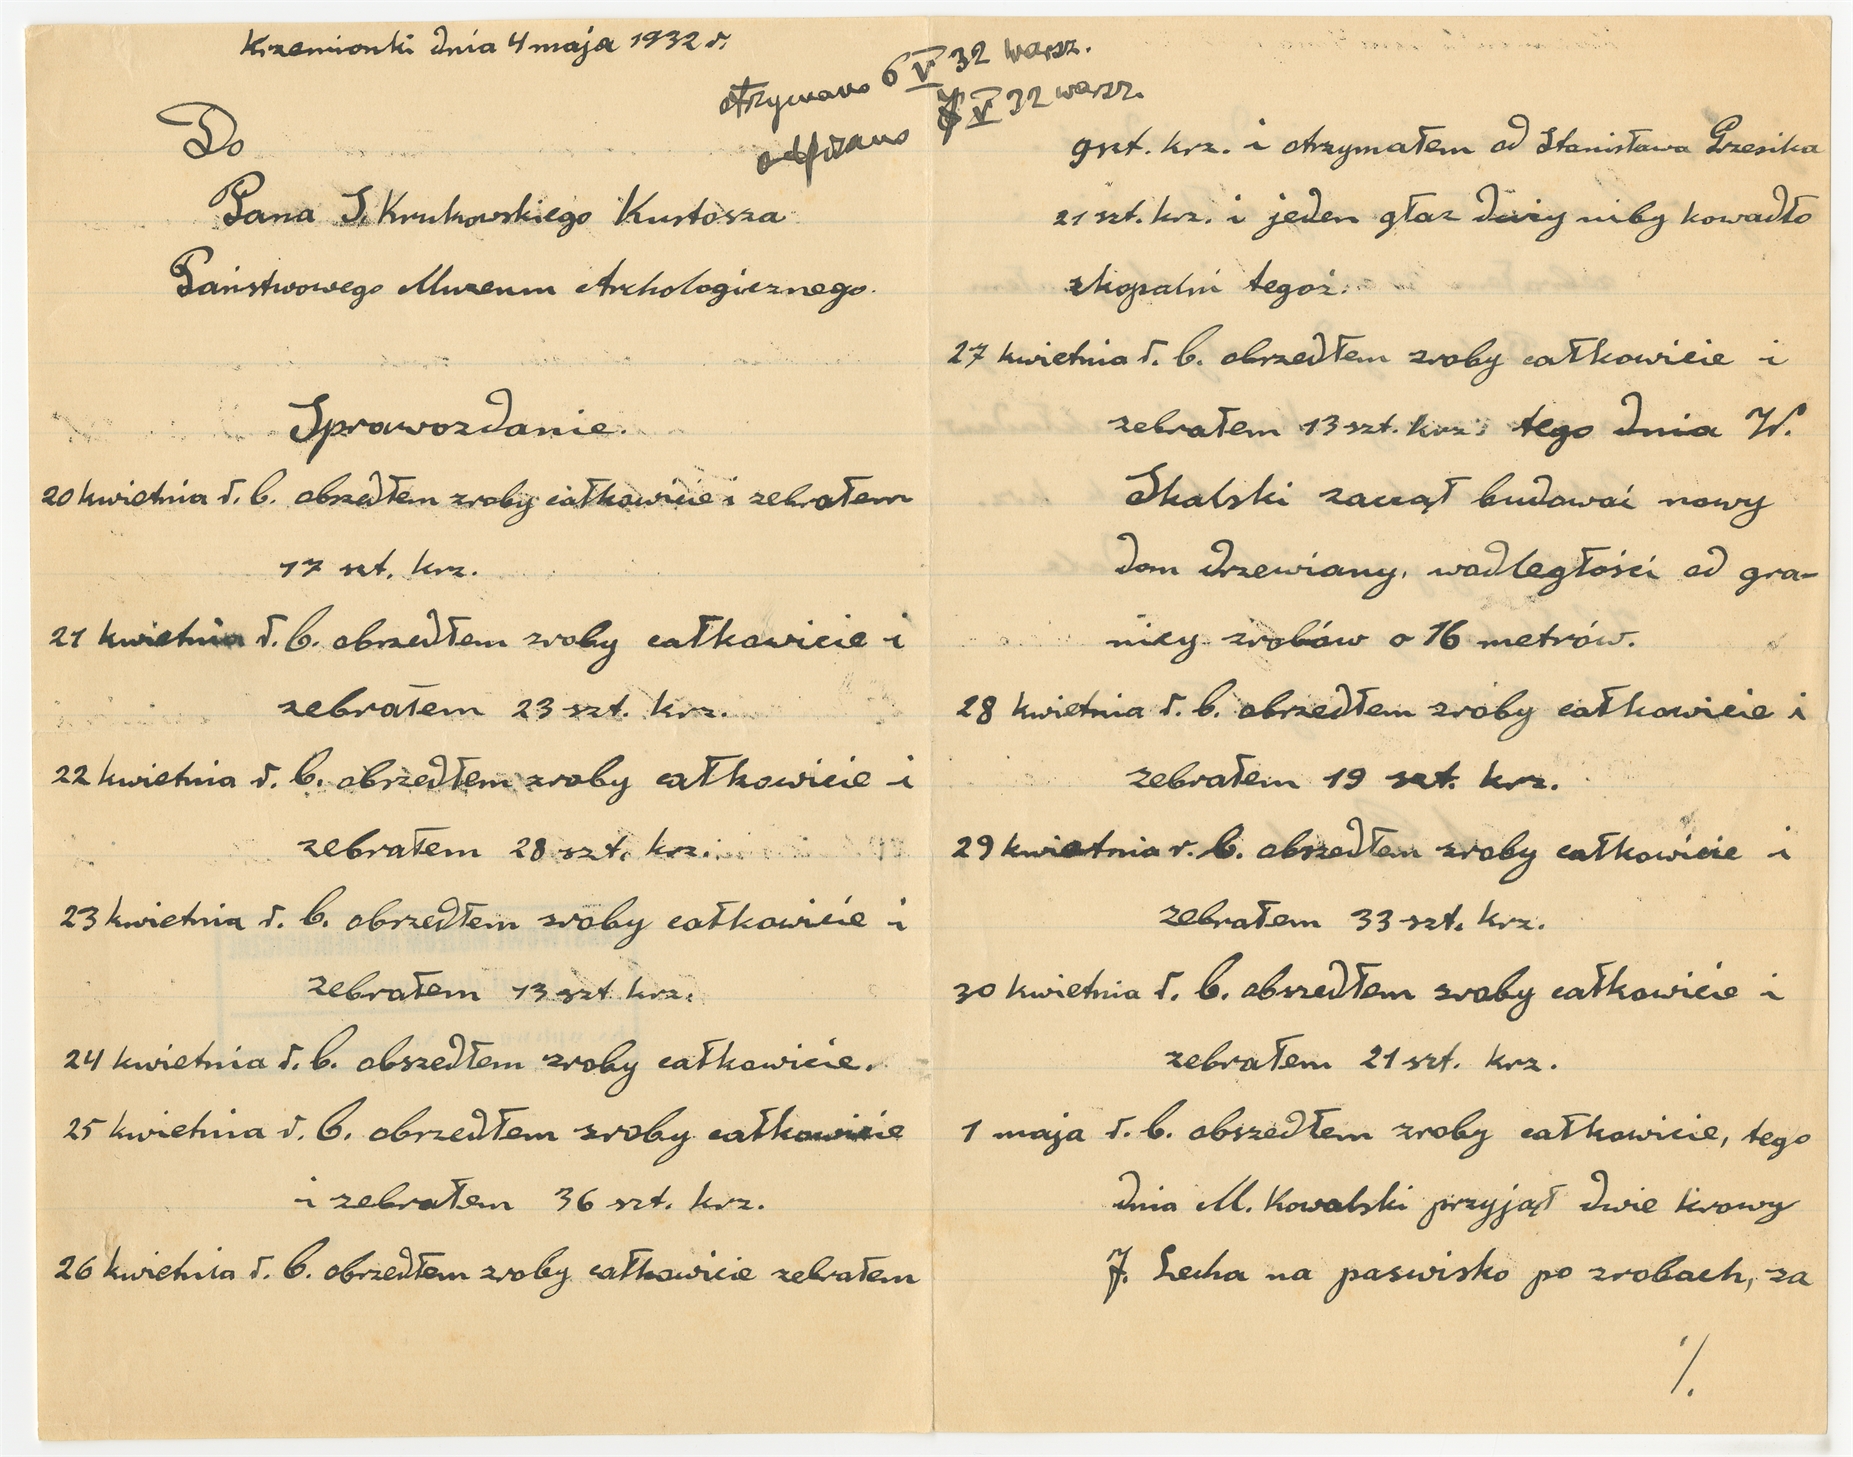 Krzemionki dnia 4 maja 1932 r.
otrzymano 6 V 32 warsz.
odpisano V 32 warsz.
Do
Pana S. Krukowskiego Kustosza
Państwowego Muzeum Archologicznego.
Sprawozdanie.
20 kwietnia r. b. obszedłem zroby całkowicie i zebrałem
17 szt. krz.
21 kwietnia r. b. obszedłem zroby całkowicie i
zebrałem 23 szt. krz.
22 kwietnia r. b. obszedłem zroby całkowicie i
zebrałem 28 szt. krz.
23 kwietnia r. b. obszedłem zroby całkowicie i
zebrałem 13 szt krz.
24 kwietnia r. b. obszedłem zroby całkowicie.
25 kwietnia r. b. obszedłem zroby całkowicie
i zebrałem 36 szt. krz.
26 kwietnia r. b. obszedłem zroby całkowicie zebrałem
9 szt. krz. i otrzymałem od Stanisława Grzesika
21 szt. krz. i jeden głaz duży niby kowadło
zkopalni tegoż.
27 kwietnia r. b. obszedłem zroby całkowicie i
zebrałem 13 szt. krz. tego dnia W.
Skalski zaczął budować nowy
dom drzewiany, wodległości od gra-
nicy zrobów o 16 metrów.
28 kwietnia r. b. obszedłem zroby całkowicie i
zebrałem 19 szt. krz.
29 kwietnia r. b. obszedłem zroby całkowicie i
zebrałem 33 szt. krz.
30 kwietnia r. b. obszedłem zroby całkowicie i
zebrałem 21 szt. krz.
1 maja r. b. obszedłem zroby całkowicie, tego
dnia M. Kowalski przyjął dwie krowy
J. Lecha na paswisko po zrobach, za
./.